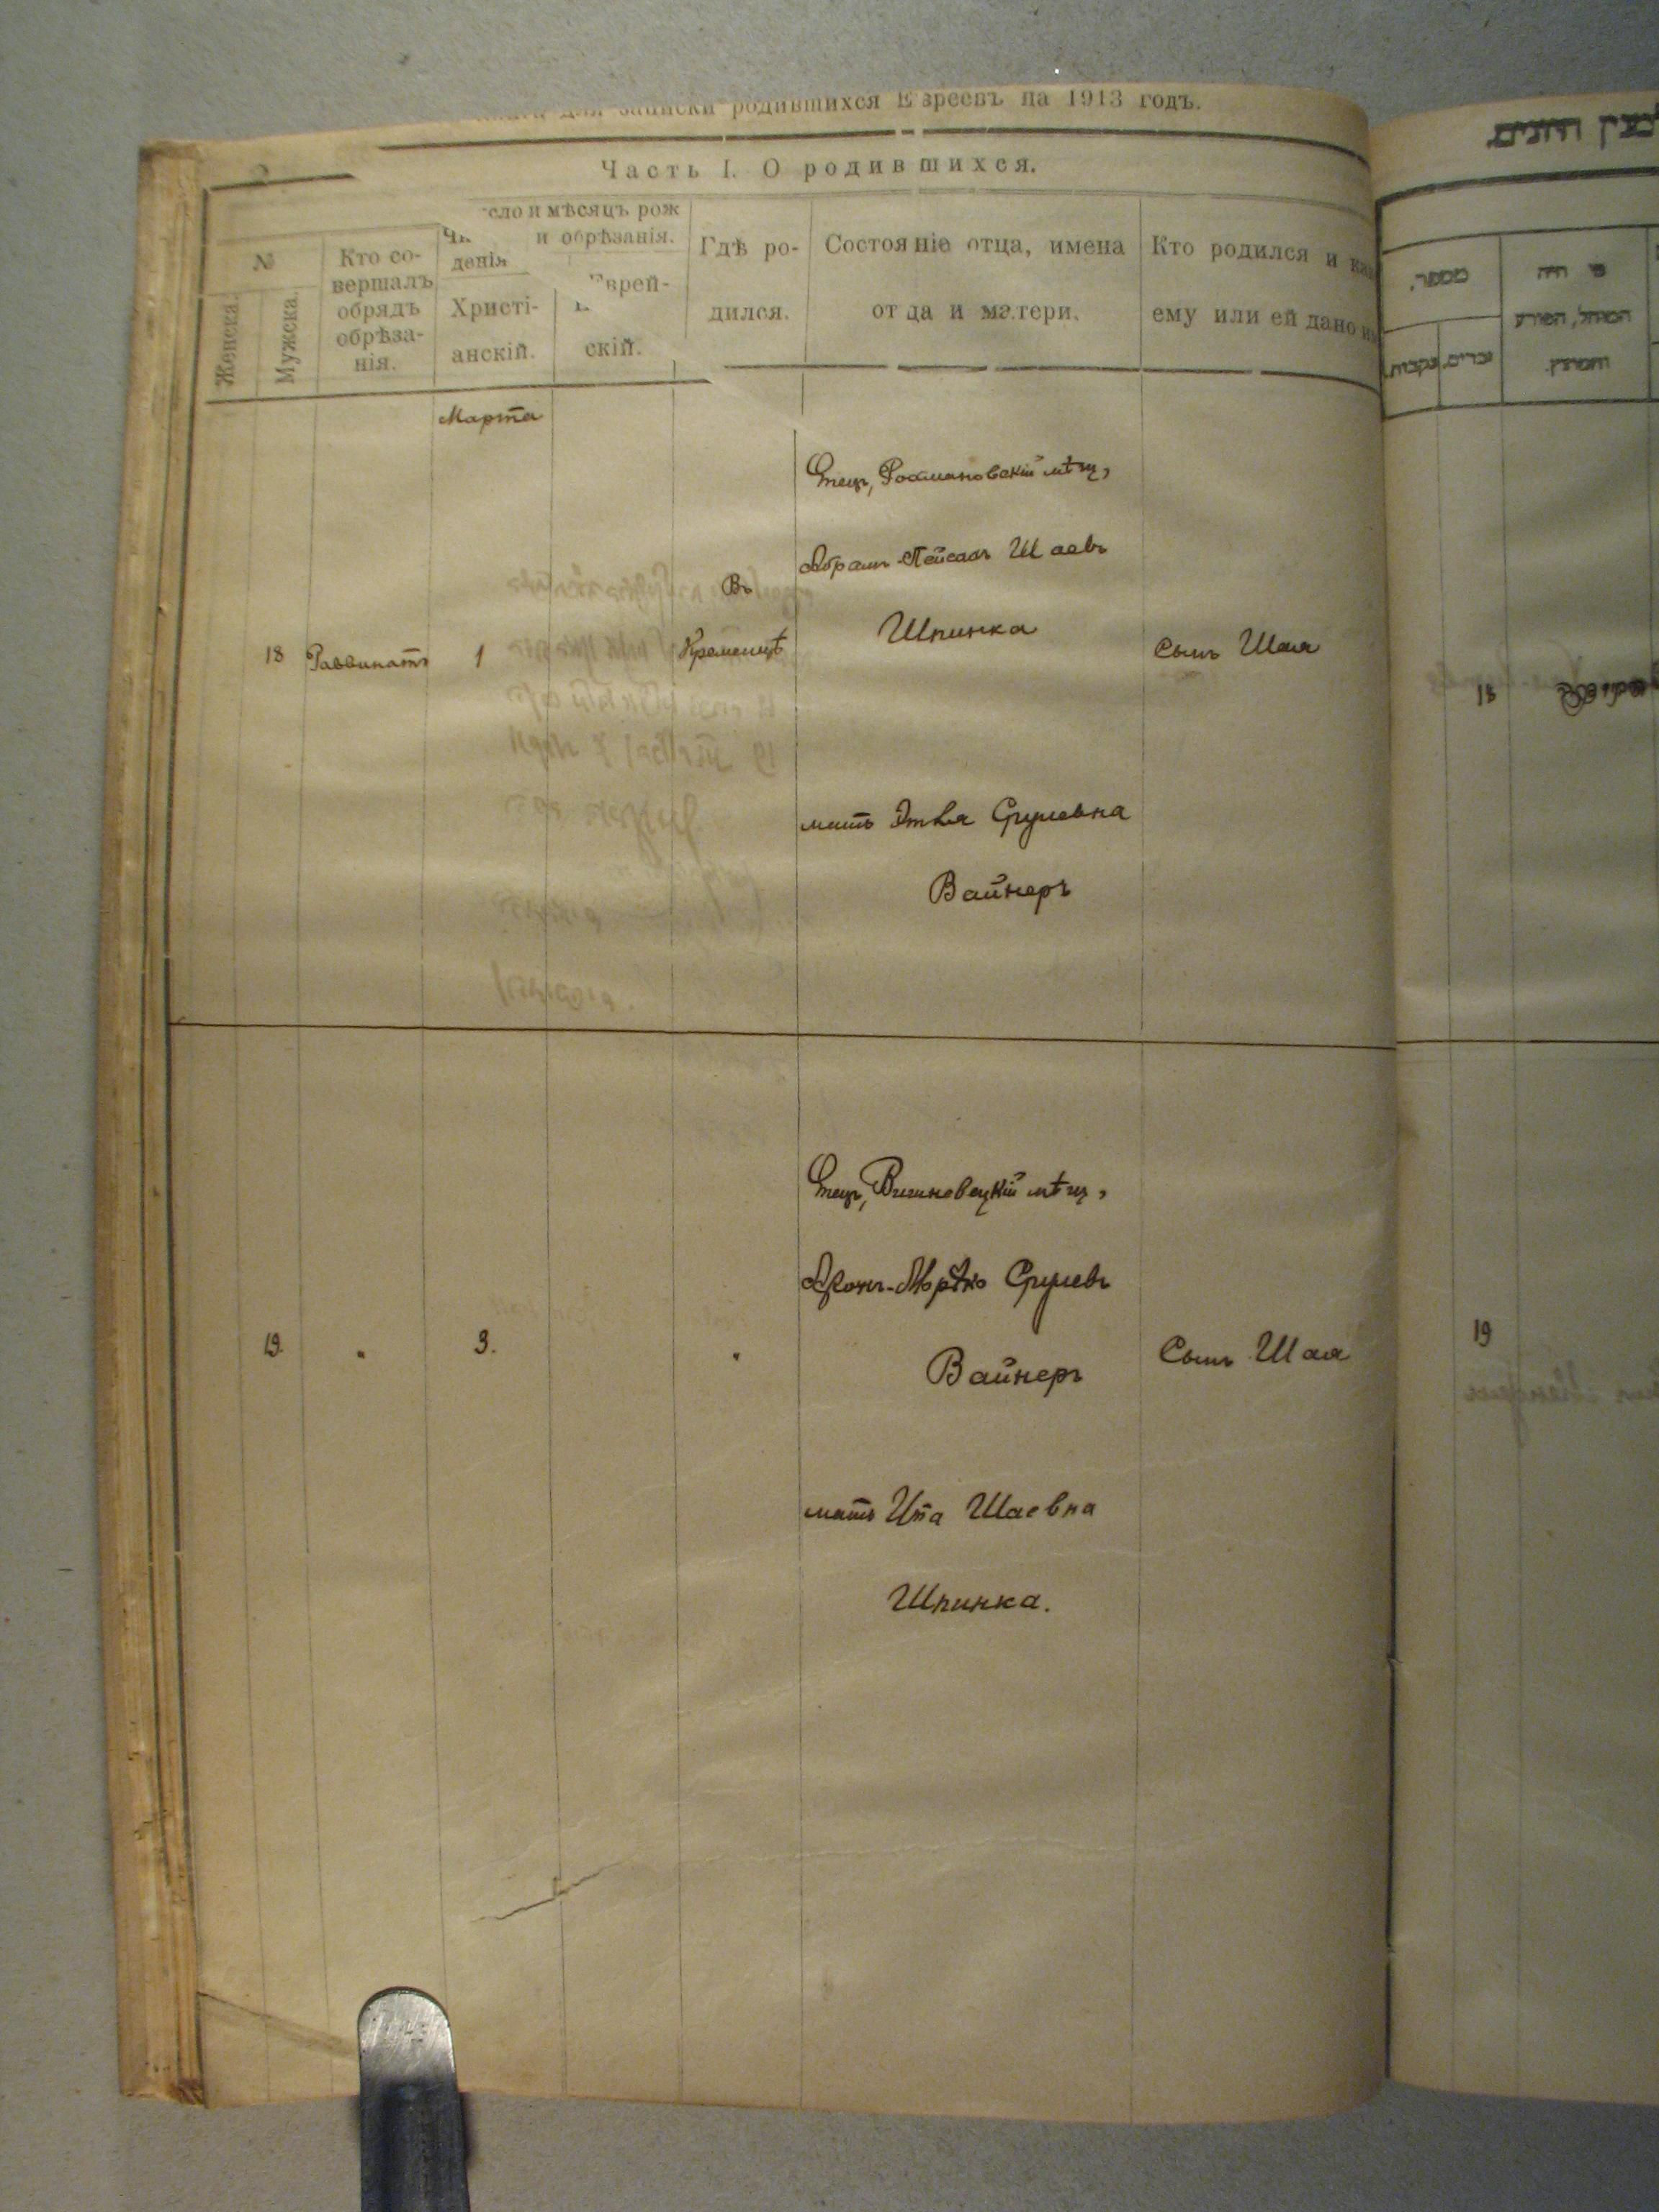 для записки родившихся Евреевъ на 1913 годъ.
Часть I. О родившихся.
№
Женска.
Мужска.
Кто со-
вершалъ
обрядъ
обрѣза-
нія.
сло и мѣсяцъ рож
денія и обрѣзанія.
Христі-
анскій.
врей-
скій.
Гдѣ ро-
дился.
Состояніе отца, имена
отца и матери.
Кто родился и как
ему или ей дано
Марта
18 Раввинатъ 1
Въ
Кременцѣ
Отецъ, Рахмановскій мѣщ,
Абрамъ-Пейсахъ Шаевъ
Шпинка
мать Этля Срулевна
Вайнеръ
Сынъ Шая
19. " 3. "
Отецъ, Вишневецкій мѣщ,
Аронъ-Мортко Срулевъ
Вайнеръ
мать Ита Шаевна
Шпинка.
Сынъ Шая
מספר.
זכרים.
נקבות.
מי היה
המוהל, הפורע
והמוצץ.
18
19